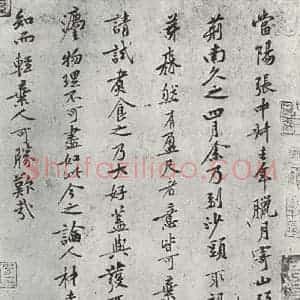 當陽張中叔去年臘月寄山
荊南久之四月餘乃到沙頭取視
芽森然有盈尺者意皆可棄
請試煮食之乃大好蓋與發
物理不可盡如此今之論人材者
知而輕棄人可勝歎哉